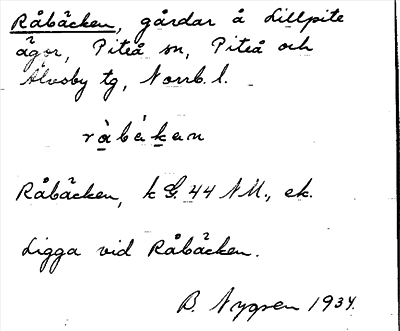 Råbäcken, gårdar å Lillpite
ägor, Piteå sn, Piteå och
Älvsby tg, Norrb. l.
råbäkan
Råbäcken, k G. 44 NM., ek.
Ligga vid Råbäcken.
B. Nygren 1934.